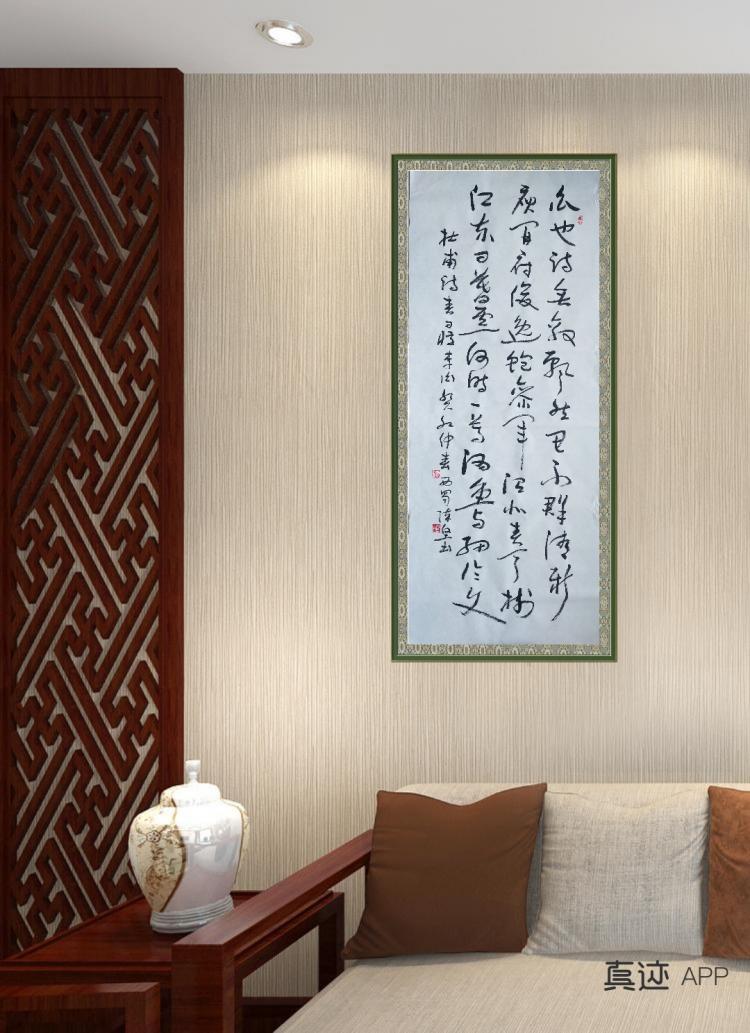 白也诗無敌飘然思不群清新
庾开府俊逸鲍参军渭北春天树
江东日暮雲何时一尊酒重与细论文
杜甫诗春日李白癸卯仲春西蜀陈书
真迹 APP